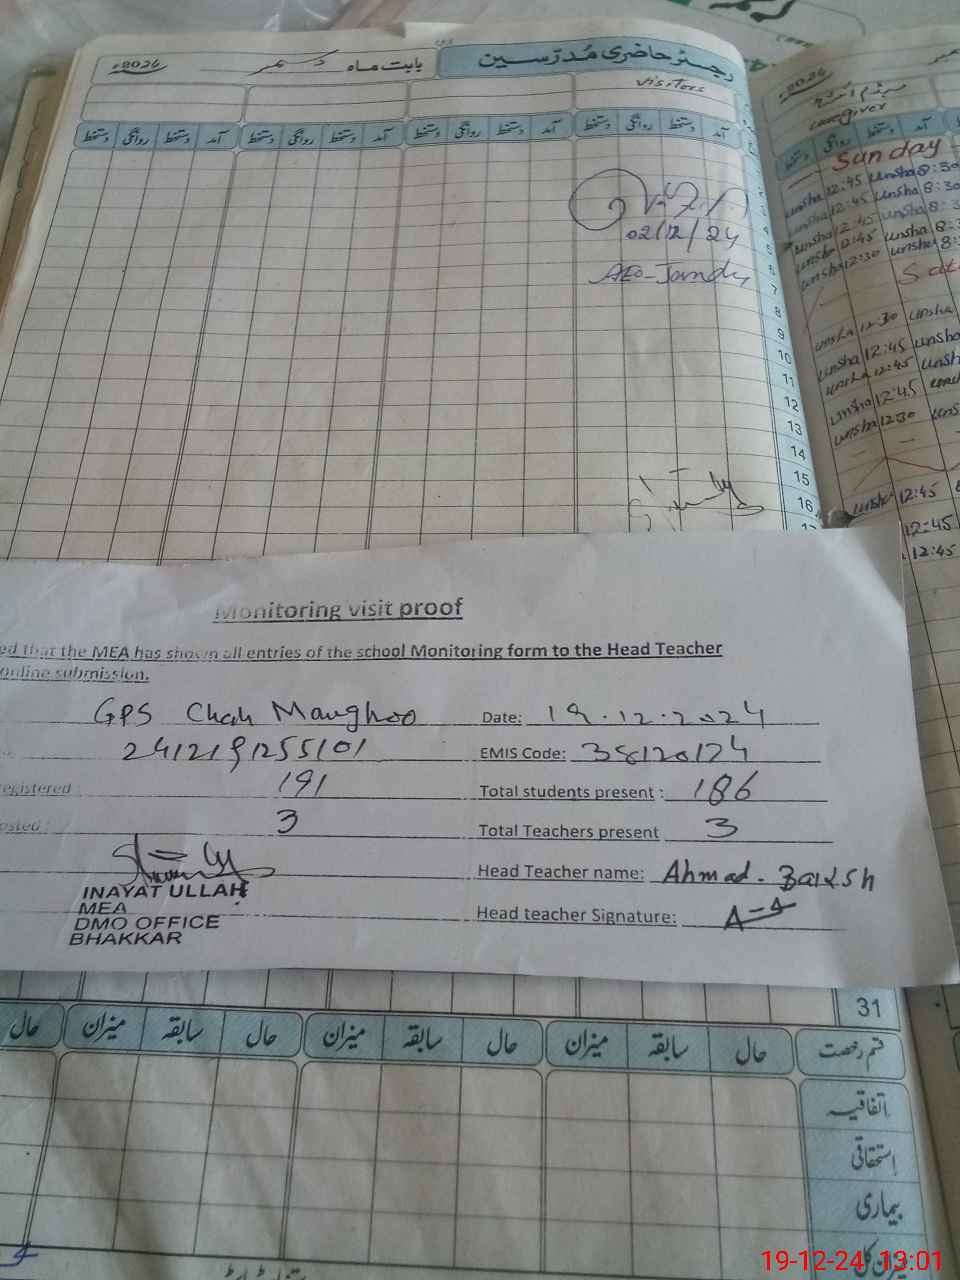 رجسٹر حاضری مدرسین
بابت ماہ دسمبر 2024ء
visitors
آمد دستخط روانگی دستخط آمد دستخط روانگی دستخط آمد دستخط روانگی دستخط آمد دستخط روانگی دستخط
02/12/24
AEO-Jandu
2
3
4
5
6
7
8
9
10
11
12
13
14
15
16
2024ء
caregiver
آمد دستخط روانگی دستخط
Sunday
unsha 12:45 unsha 8:30
unsha 12:45 unsha 8:30
unsha 12:45 unsha 8:3
unsha 12:45 unsha 8:3
unsha 12:30 unsha 8:
unsha 12:30 unsha
unsha 12:45 unsha
unsha 12:45 unsh
unsha 12:45
unsha 12:30 uns
unsha 12:45
12:45
12:45
Monitoring visit proof
ed that the MEA has shown all entries of the school Monitoring form to the Head Teacher
online submission.
GPS Chah Manghoo Date: 19.12.2024
2412191255101 EMIS Code: 38120124
egistered : 191 Total students present : 186
osted : 3 Total Teachers present 3
Head Teacher name: Ahmad. Bakhsh
INAYAT ULLAH
MEA
DMO OFFICE
BHAKKAR
Head teacher Signature:
31
قسم رخصت حال سابقہ میزان حال سابقہ میزان حال سابقہ میزان حال
اتفاقیہ
استحقاقی
بیماری
میزان کل
19-12-24 13:01